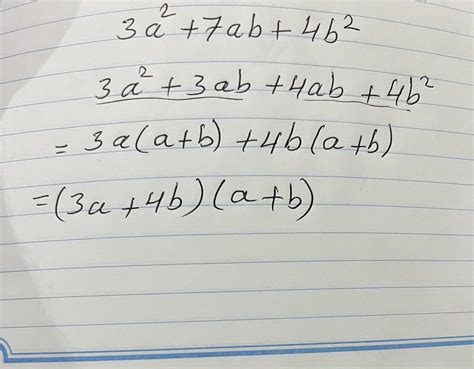 3a²+7ab+4b²
3a²+3ab+4ab+4b²
=3a(a+b)+4b(a+b)
=(3a+4b)(a+b)